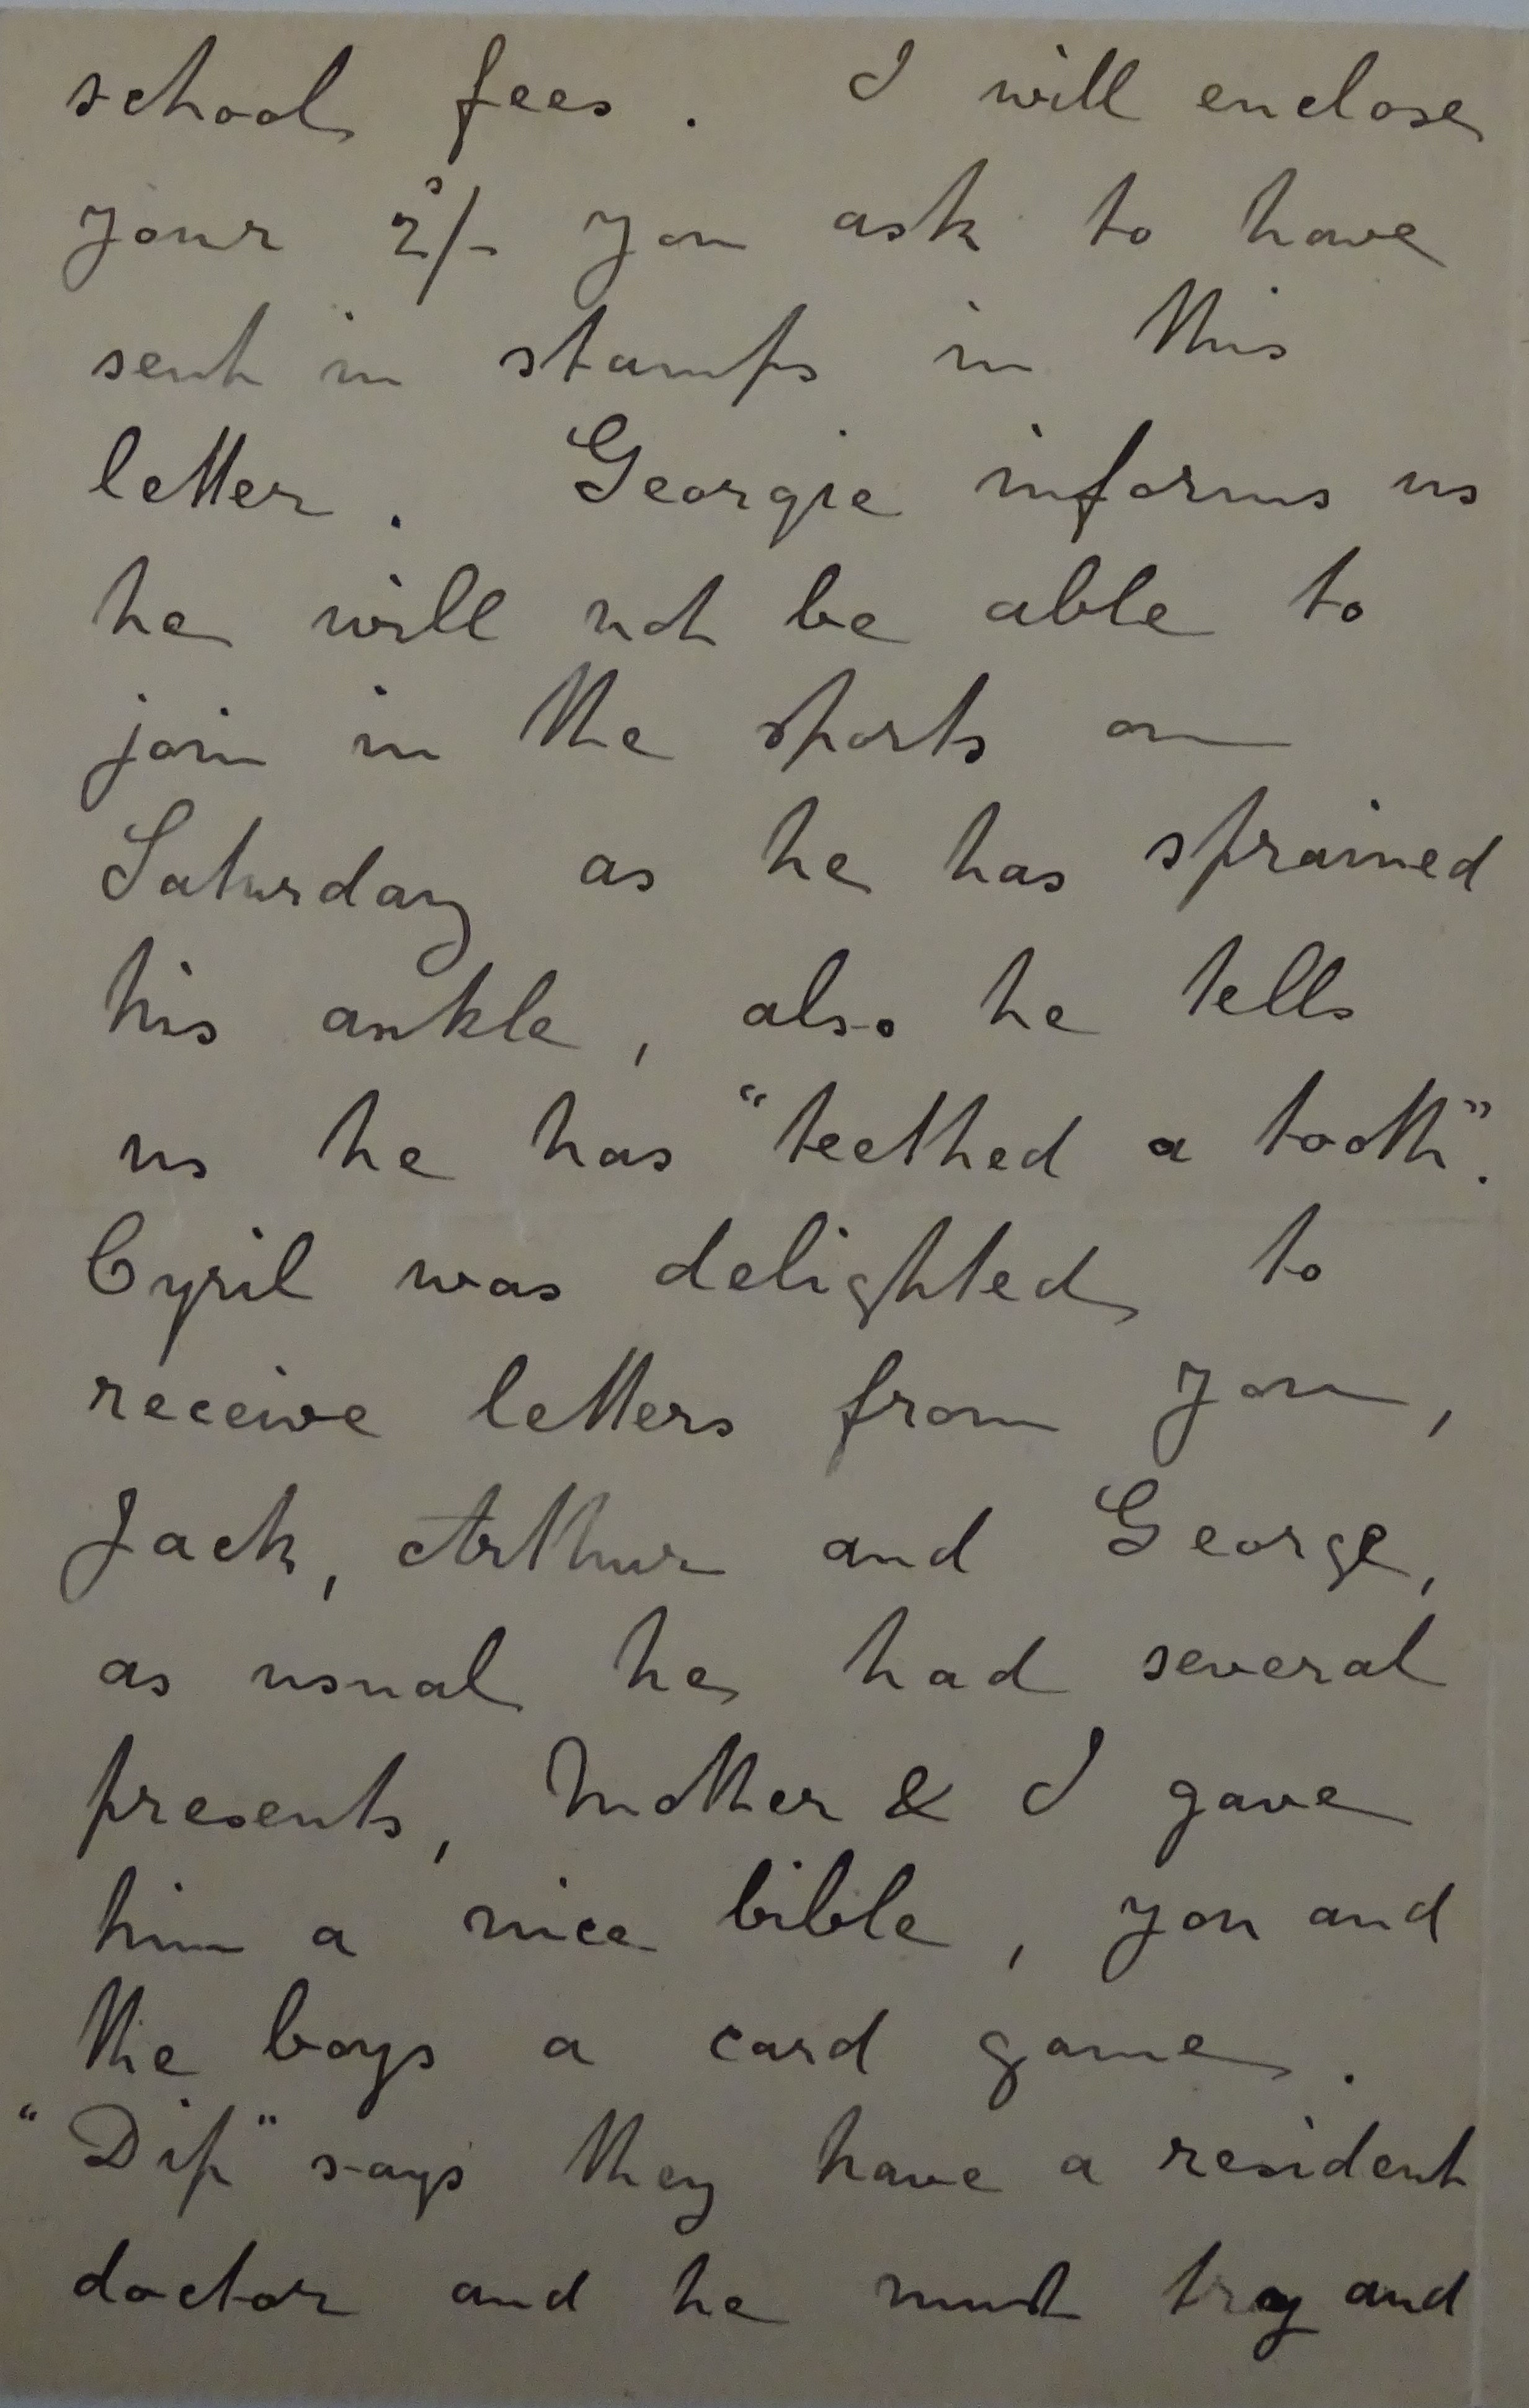 school fees. I will enclose
your 2s/- you ask to have
sent in stamps in this
letter. Georgie informs us
he will not be able to
join in the sports on
Saturday as he has sprained
his ankle, also he tells
us he has "teethed a tooth".
Cyril was delighted to
receive letters from you,
Jack, Arthur and George,
as usual he had several
presents, Mother & I gave
him a nice bible, you and
the boys a card game.
"Dip" says they have a resident
doctor and he must try and